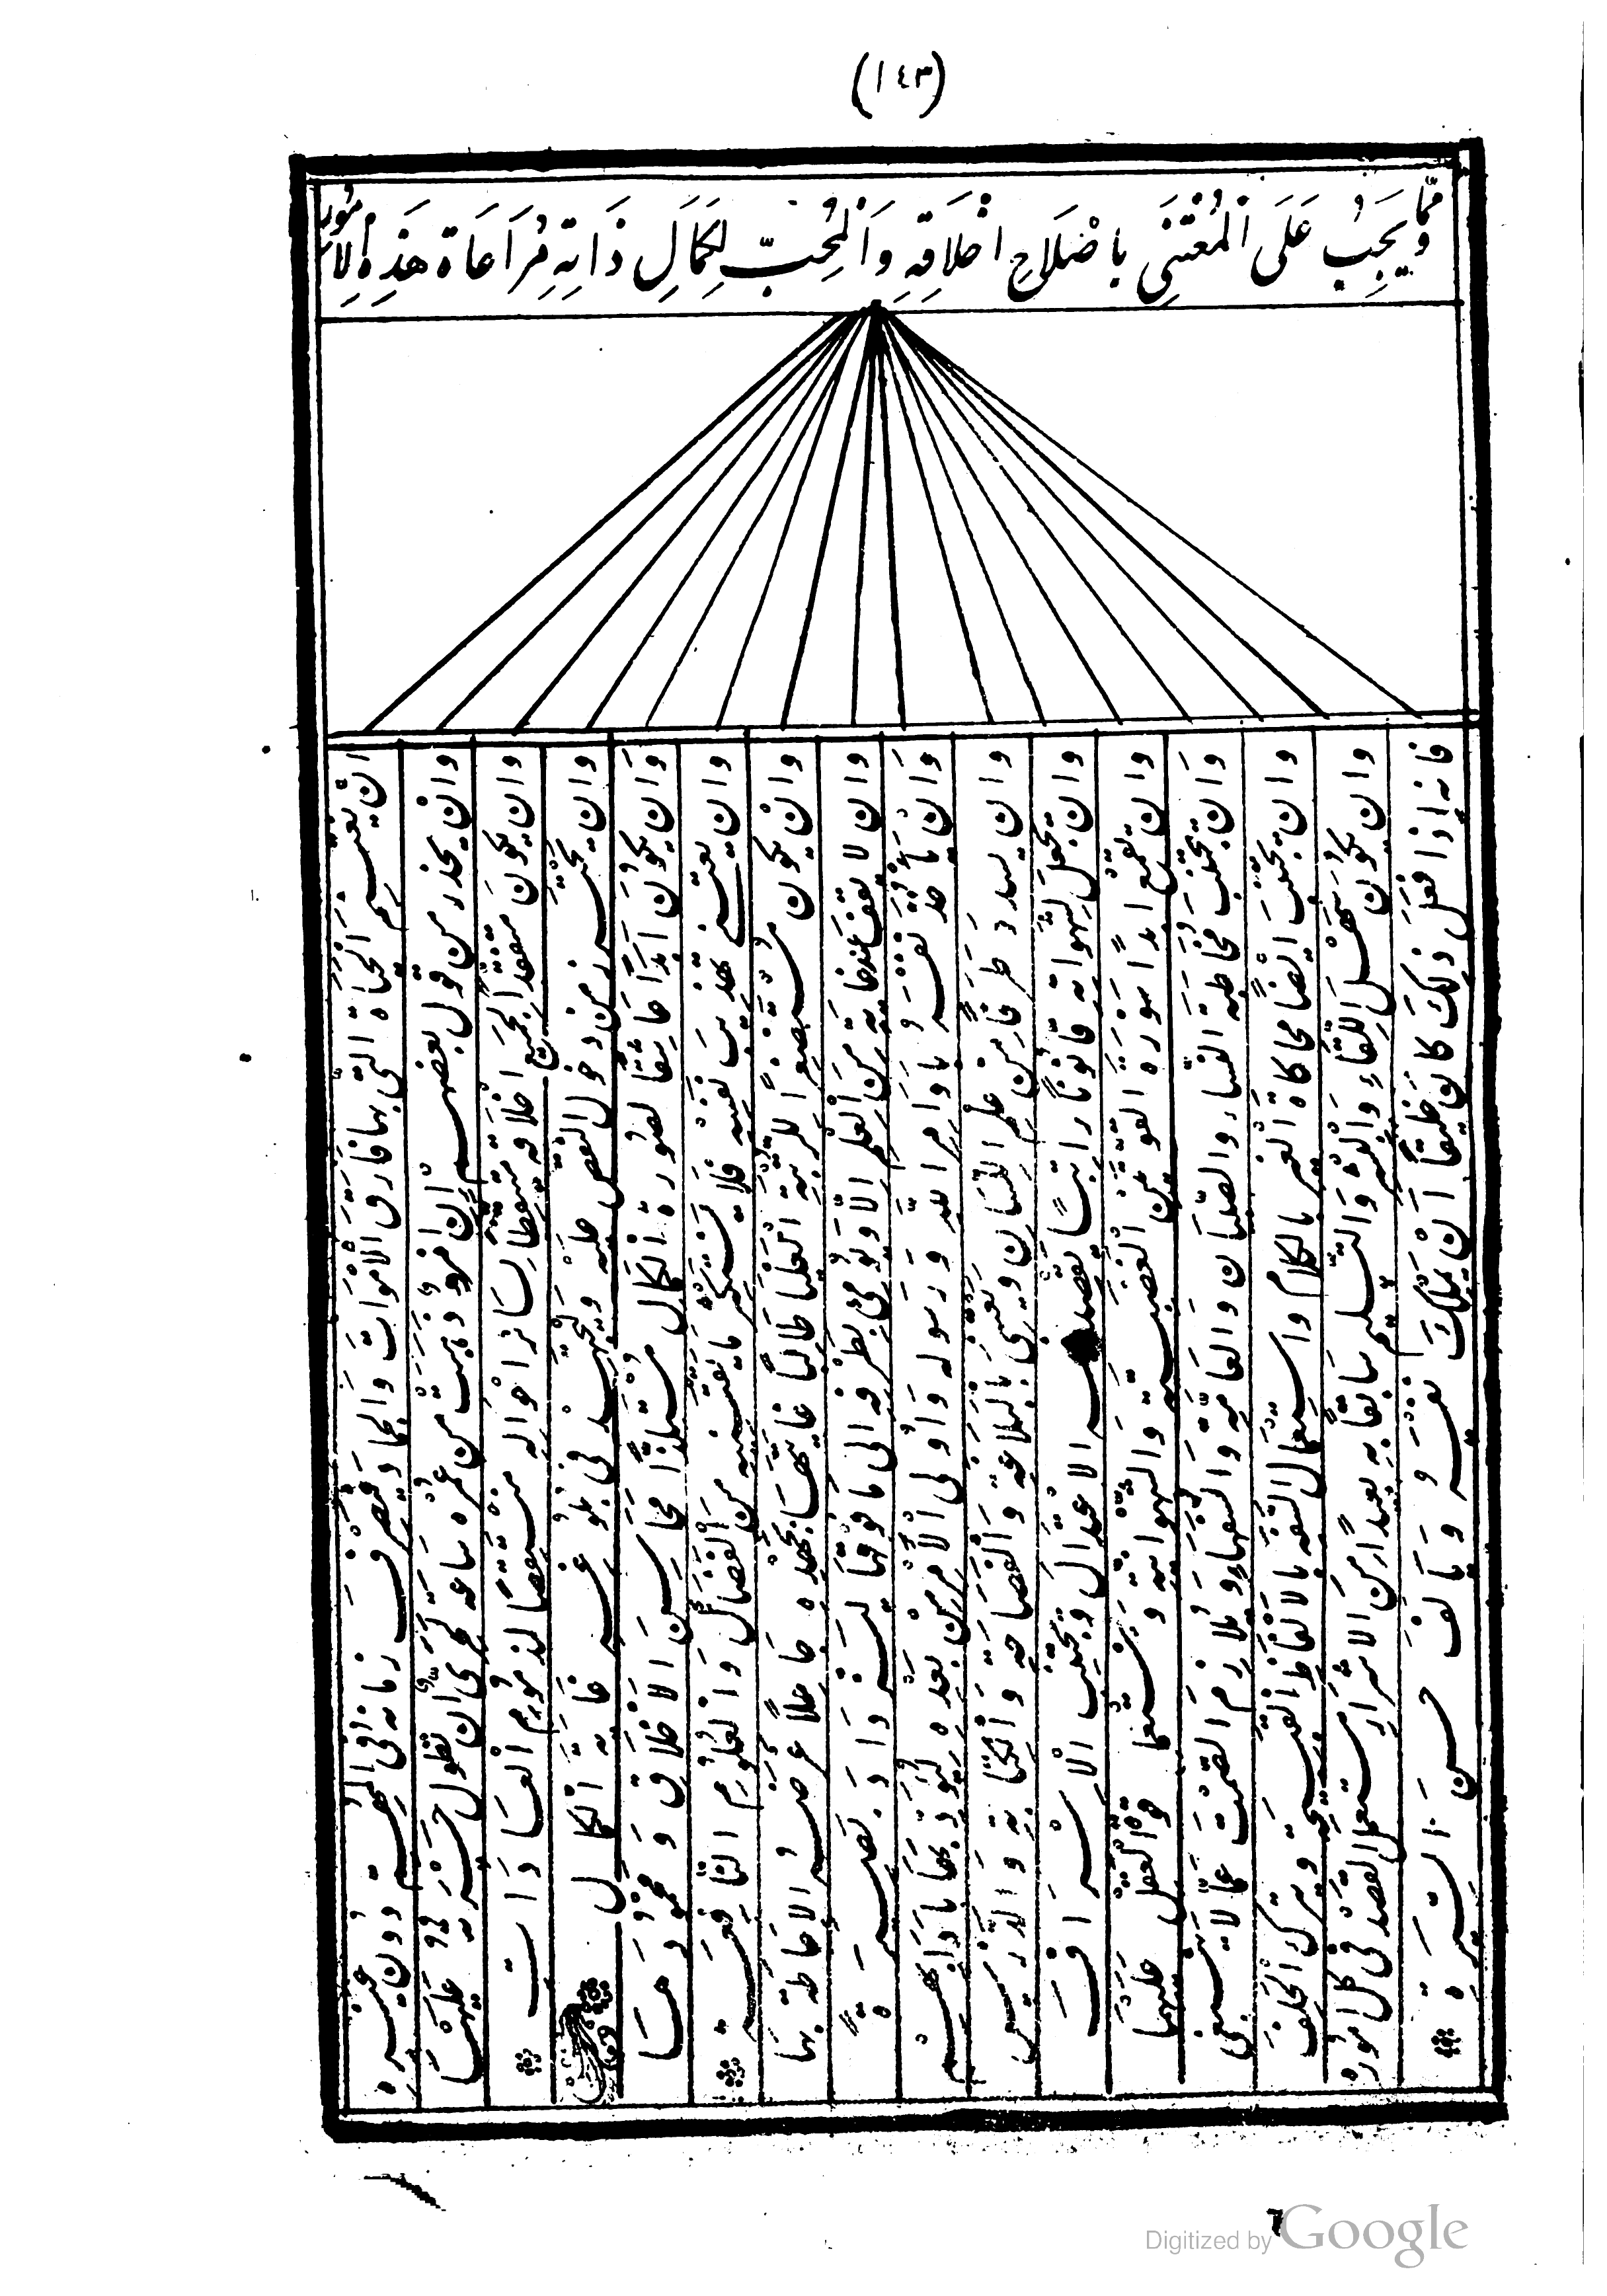 (١٤٣)
وَمِمَّا يَجِبُ عَلَى اَلْمُعْتَنِي بِاصْلَاحِ اخْلَاقِهِ وَالْمُحِبِّ لِكَمَالِ ذَاتِهِ مُرَاعَاةُ هَذِهِ اْلاُمُورِ
ان يغتنم الحياة التي بها فارق الاموات والجماد ويصرف زمانه في المهم دون غيره
وان يحذر من قول بعضهم ان امرؤ ذهبت من عمره ساعة لحرى ان تطول حسرته عليها
وان يكون متفقدا لجميع اخلاقه متيقظا لسائر احواله منتقصا لمذموم العادات
وان يحترز من دخول النقص عليه ويجتهد في بلوغ غاية الكمال
وان يكون ابدا عاشقا لصورة الكمال مستلذا محاسن الاخلاق ومحمودها
وان يعتني بتهذيب نفسه فلا يستكثر ما يقتنيه من الفضائل والعلوم النافعة
وان يكون مستصغرا للرتبة العليا طالبا غايتها بجهده جاعلا غرضه الاحاطة بها
وان لا يقف عند غاية من العلم الا ويومئ بطرفه الى ما فوقها ليزداد بصيرة
وان ياخذ نفسه باوامر الله ورسوله واولى الامر من بعده ليؤدبها بادابهم
وان يسدد طرفا من علم اللسان ويعنى بالبلاغة والفصاحة والكتابة والدرسعى
وان يجعل لشهواته قانونا راتبا يقصد به الاعتدال ويجتنب الاسراف
وان يقمع ابدا سورة القوتين الغضبية والشهوانية ويستعمل قوة العقل عليهما
وان يجتنب مخاطبة النساء والصبيان والعامة والسفهاء ويلازم الصمت عما لا ينبغى
وان يجتنب ايضا محاكاة الغير بالكلام واستعمال التفه بالالفاظ القبيحة ويترك الحلف
وان يكون سهل اللقاء والبشر والتسليم سابقا به بعيدا من الاشرار مستعمل القصد في كل اموره
فانه اذا فعل ذلك كان خليقا ان يملك نفسه ويألف حسن السيرة
Digitized by Google